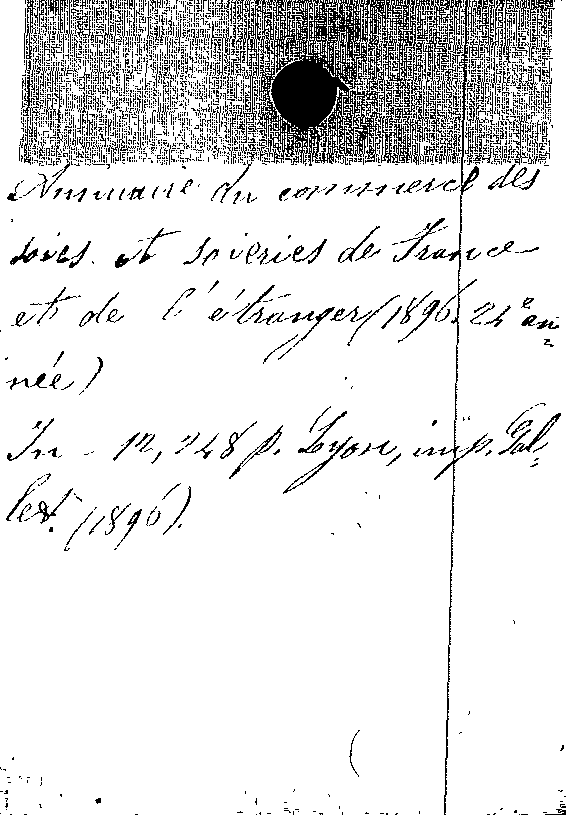 Annuaire du commerce des
soies et soieries de France
et de l'étranger (1896. 24e an=
née)
In-12, 248 p. Lyon, imp. Gal=
let. (1896).